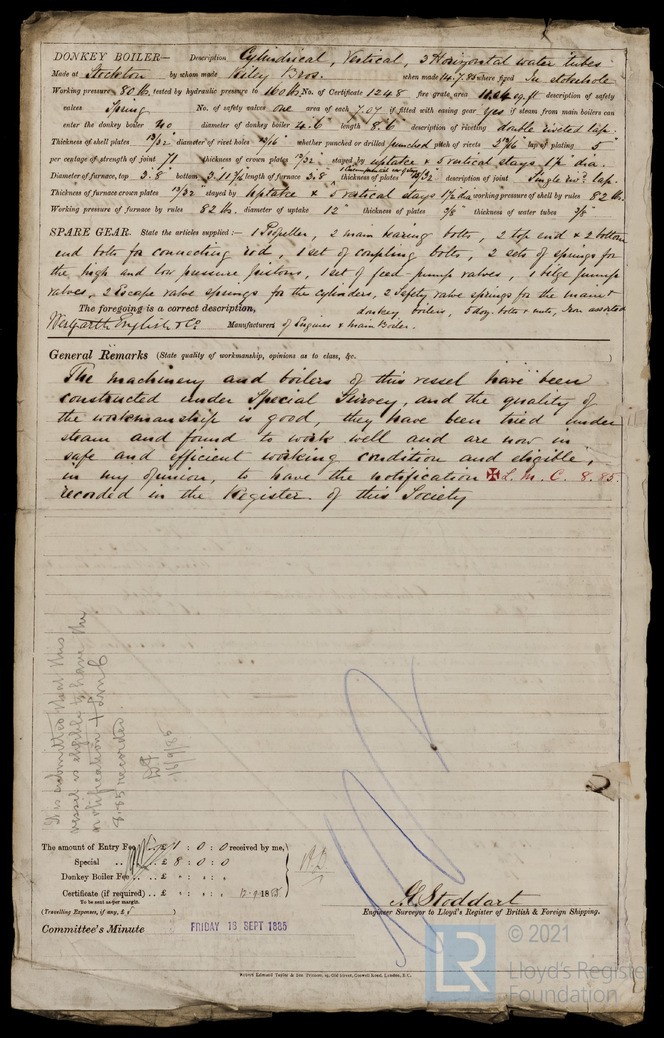 DONKEY BOILER— Description Cylindrical, Vertical, 2 Horizontal water tubes
Made at Stockton by whom made Riley Bros. when made 14.7.85 where fixed In stokehole
Working pressure 80 lb. tested by hydraulic pressure to 160 lb. No. of Certificate 1248 fire grate area 11.04 sq. ft description of safety
valves Spring No. of safety valves one area of each 7.07 if fitted with easing gear yes if steam from main boilers can
enter the donkey boiler no diameter of donkey boiler 4.6 length 8.6 description of riveting double riveted lap
Thickness of shell plates 13/32 diameter of rivet holes 13/16 whether punched or drilled punched pitch of rivets 2 9/16 lap of plating 5
per centage of strength of joint 71 thickness of crown plates 13/32 stayed by uptake & 5 vertical stays 1½ dia.
Diameter of furnace, top 3.8 bottom 3.11 7/8 length of furnace 3.8 thickness of plates 13/32 description of joint Single riv. lap.
Thickness of furnace crown plates 13/32 stayed by uptake & 5 vertical stays 1½ dia working pressure of shell by rules 82 lb.
Working pressure of furnace by rules 82 lb. diameter of uptake 12" thickness of plates 3/8 thickness of water tubes 3/8
SPARE GEAR. State the articles supplied:— 1 Propeller, 2 main bearing bolts, 2 top end & 2 bottom
end bolts for connecting rod, 1 set of coupling bolts, 2 sets of springs for
the high and low pressure pistons, 1 set of feed pump valves, 1 bilge pump
valves, 2 Escape valve springs for the cylinders, 2 Safety valve springs for the main &
The foregoing is a correct description, donkey boilers, 5 doz. bolts & nuts, Iron assorted
Westgarth English & Co. Manufacturers of Engines & Main Boiler.
General Remarks (State quality of workmanship, opinions as to class, &c.
The machinery and boilers of this vessel have been
constructed under Special Survey, and the quality of
the workmanship is good, they have been tried under
steam and found to work well and are now in
safe and efficient working condition and eligible,
in my opinion, to have the notification ✠ L. M. C. 8. 85.
recorded in the Register of this Society
It is submitted that this
vessel is eligible to have the
notification + LMC
8.85 recorded.
16/9/85
The amount of Entry Fee .. £ 1 : 0 : 0 received by me,
Special .. £ 8 : 0 : 0
Donkey Boiler Fee .. £ : :
Certificate (if required) .. £ : : 18 85
To be sent as per margin.
(Travelling Expenses, if any, £ )
G. Stoddart
Engineer Surveyor to Lloyd's Register of British & Foreign Shipping.
Committee's Minute FRIDAY 18 SEPT 1885
© 2021
LR Lloyd's Register
Foundation